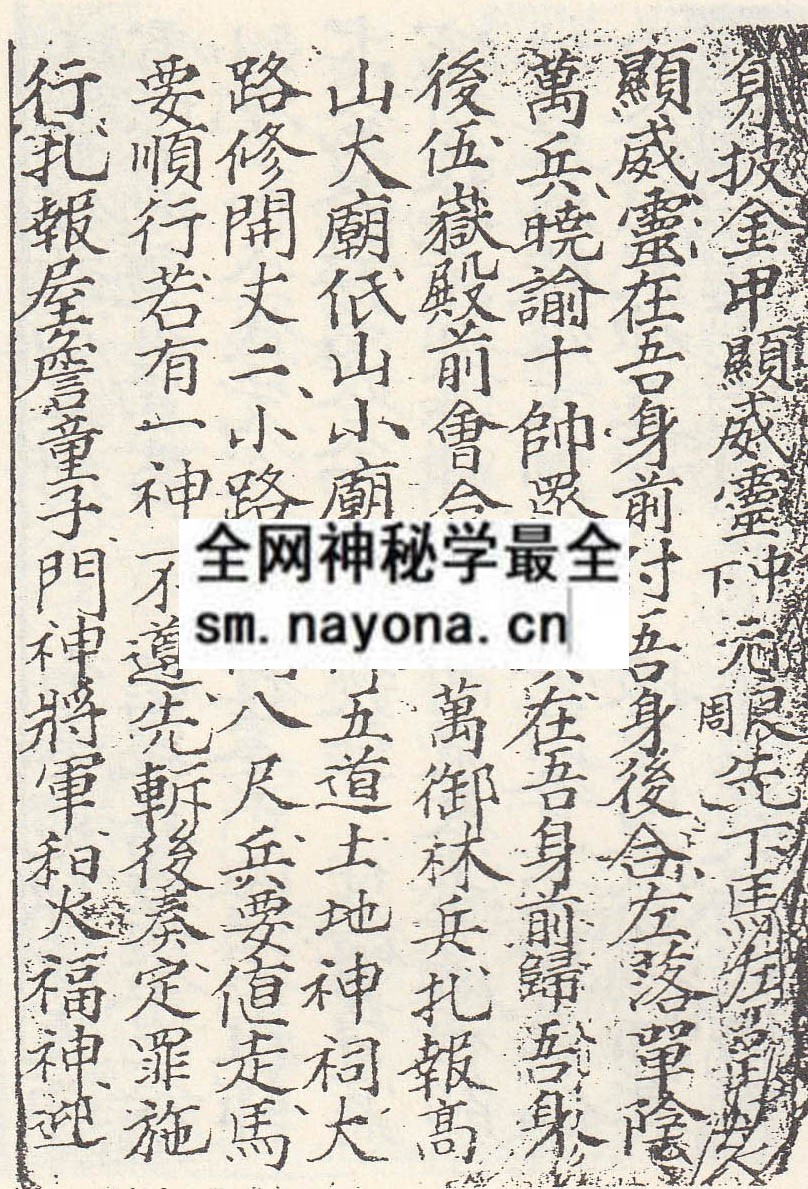 身披金甲顯威靈中下元周眼先下馬左
顯威靈在吾身前付吾身後合左落單陰
萬兵曉諭十帥眾在吾身前歸吾身
後伍嶽殿前會合萬御林兵扎報高
山大廟低山小廟五道土地神祠大
路修開丈二小路八尺兵要值走馬
要順行若有一神不遵先斬後奏定罪施
行扎報屋詹童子門神將軍和火福神迎
全网神秘学最全
sm.nayona.cn